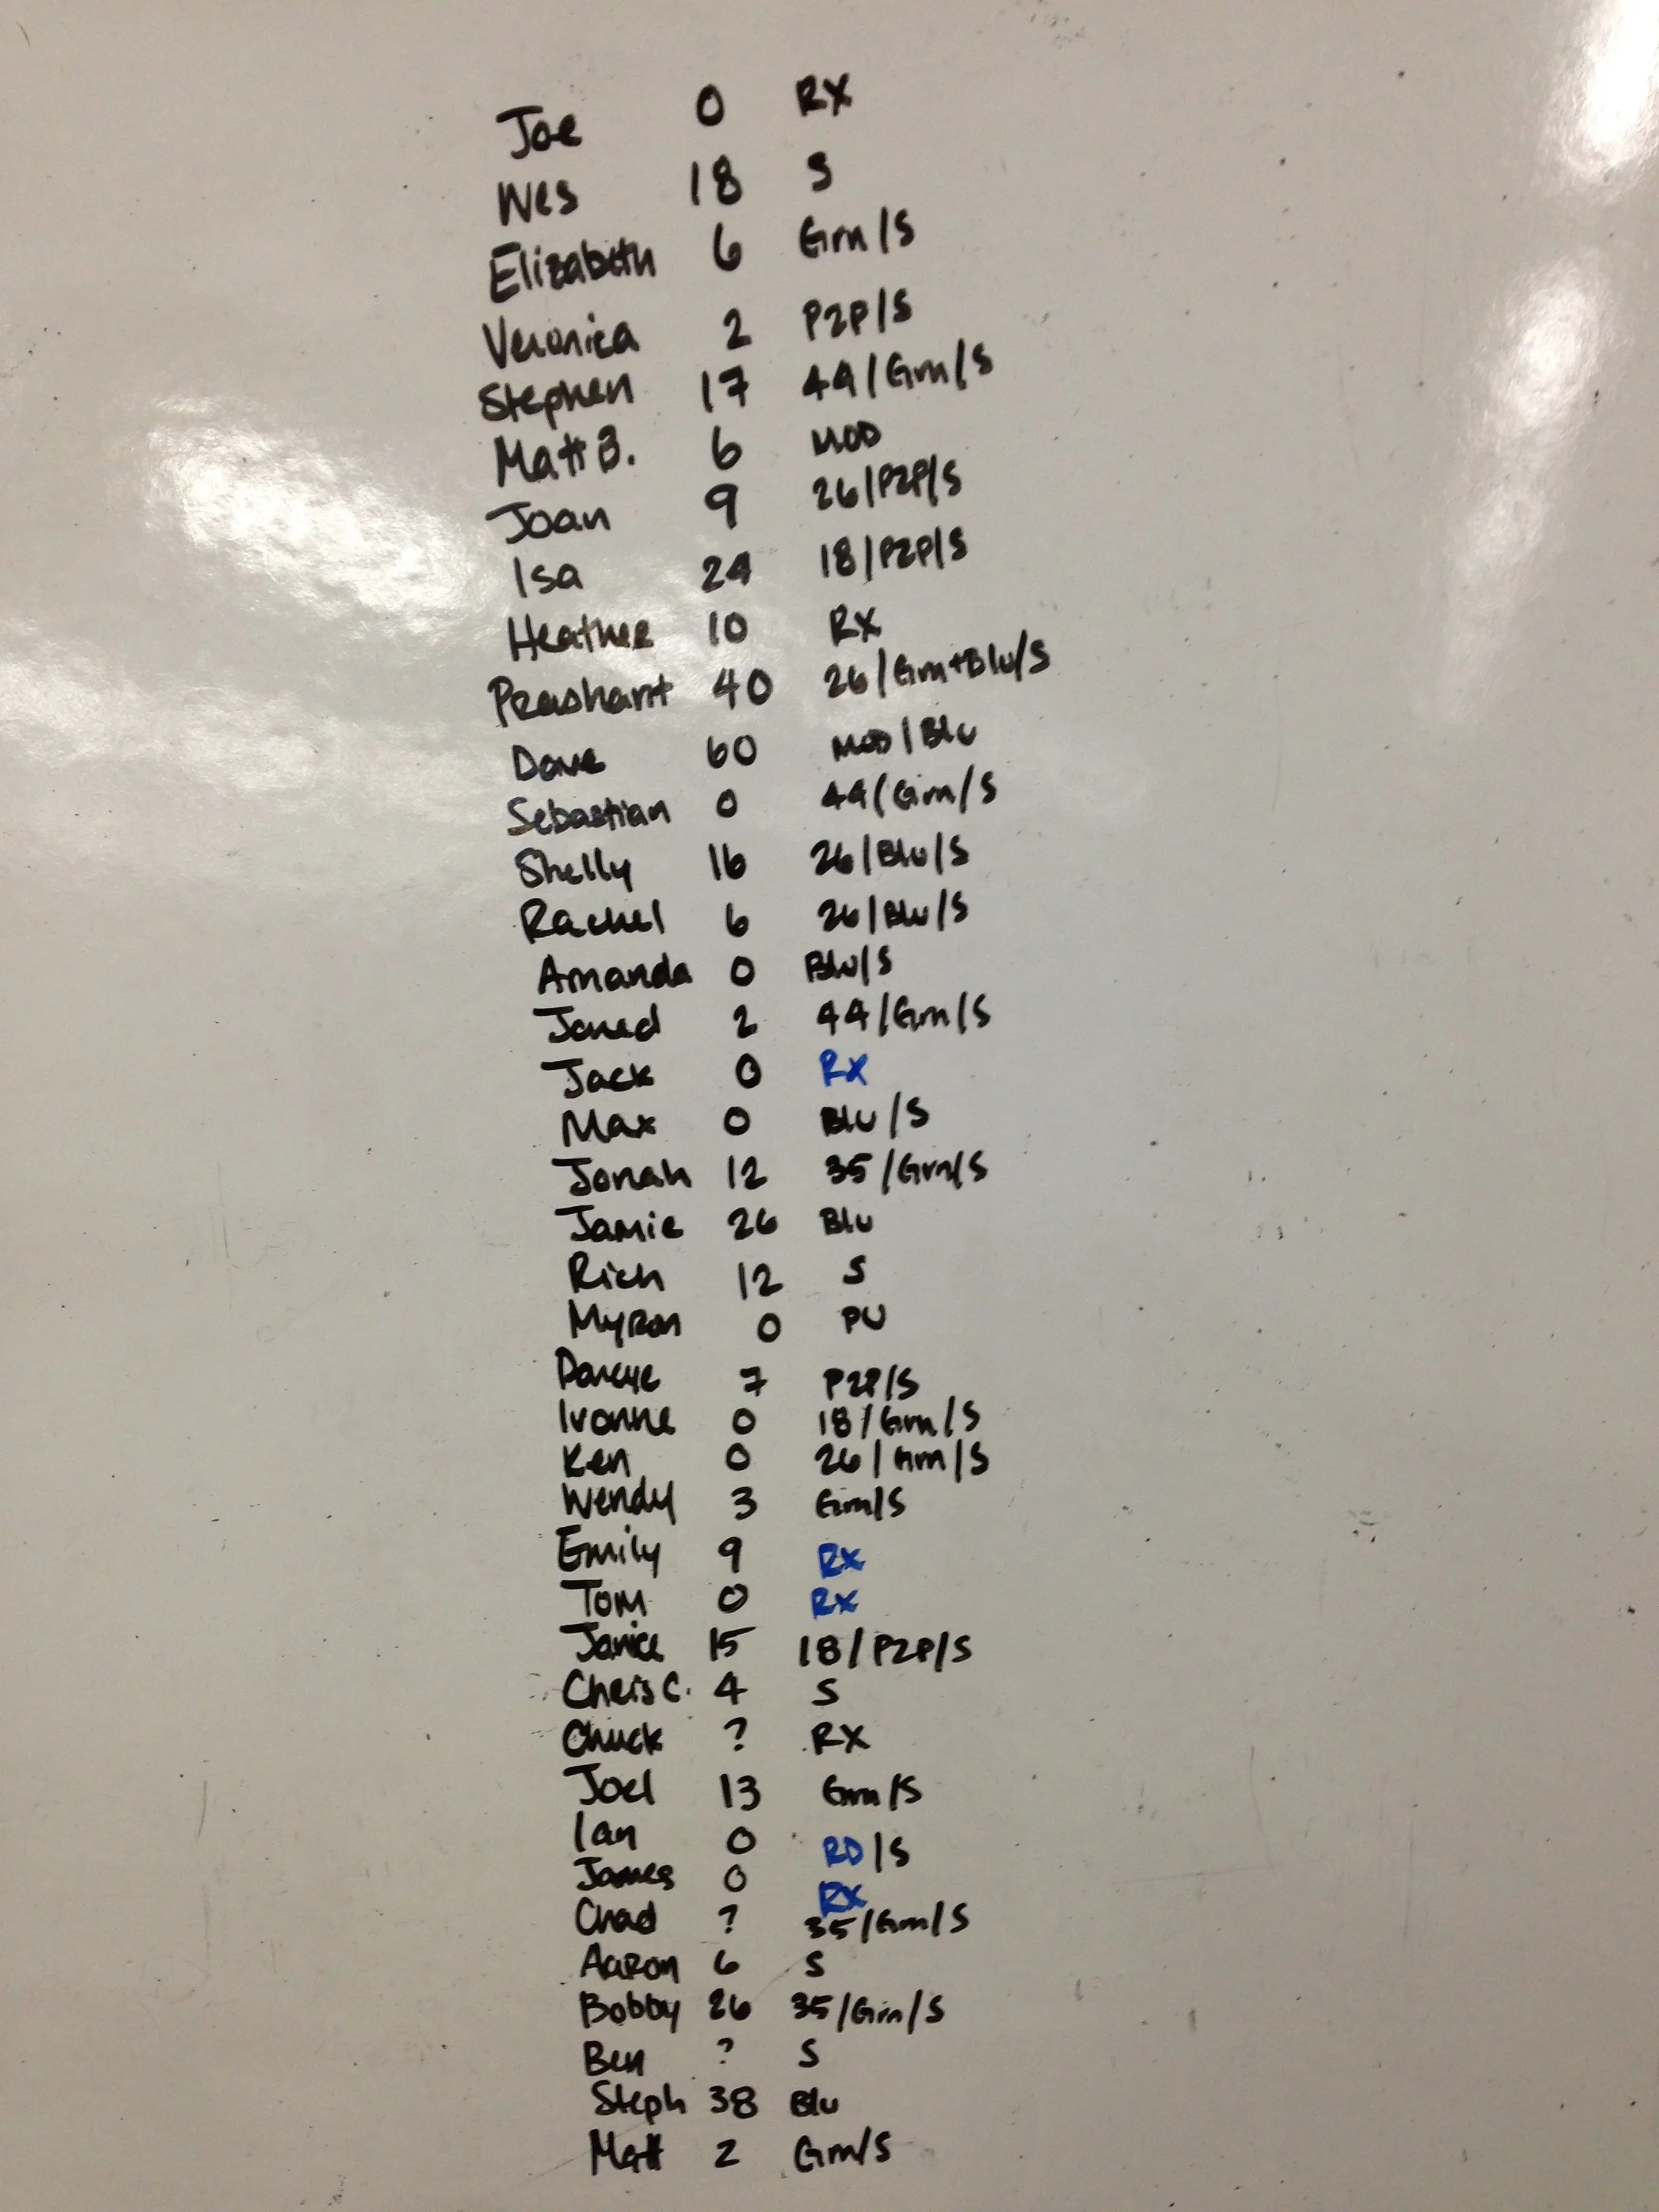 Joe 0 RX
Wes 18 S
Elizabeth 6 Grn/S
Veronica 2 P2P/S
Stephen 17 44/Grn/S
Matt B. 6 MOD
Joan 9 26/P2P/S
Isa 24 18/P2P/S
Heather 10 RX
Prashant 40 26/Grn+Blu/S
Dave 60 MOD/Blu
Sebastian 0 44/Grn/S
Shelly 16 26/Blu/S
Rachel 6 26/Blu/S
Amanda 0 Blu/S
Jared 2 44/Grn/S
Jack 0 RX
Max 0 Blu/S
Jonah 12 35/Grn/S
Jamie 26 Blu
Rich 12 S
Myron 0 PU
Darcye 7 P2P/S
Ivonne 0 18/Grn/S
Ken 0 26/Grn/S
Wendy 3 Grn/S
Emily 9 RX
Tom 0 RX
Janice 15 18/P2P/S
Chris C. 4 S
Chuck ? RX
Joel 13 Grn/S
Ian 0 RD/S
James 0 RX
Chad ? 35/Grn/S
Aaron 6 S
Bobby 26 35/Grn/S
Ben ? S
Steph 38 Blu
Matt 2 Grn/S